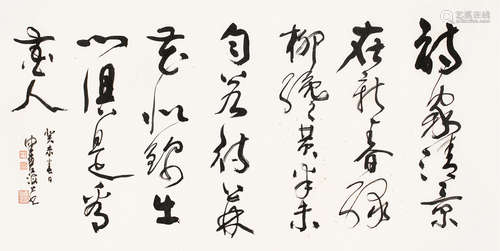 詩家清景
在新春綠
柳纔黄半未
勻若待上林
花似錦出
門俱是看
花人
癸未春日